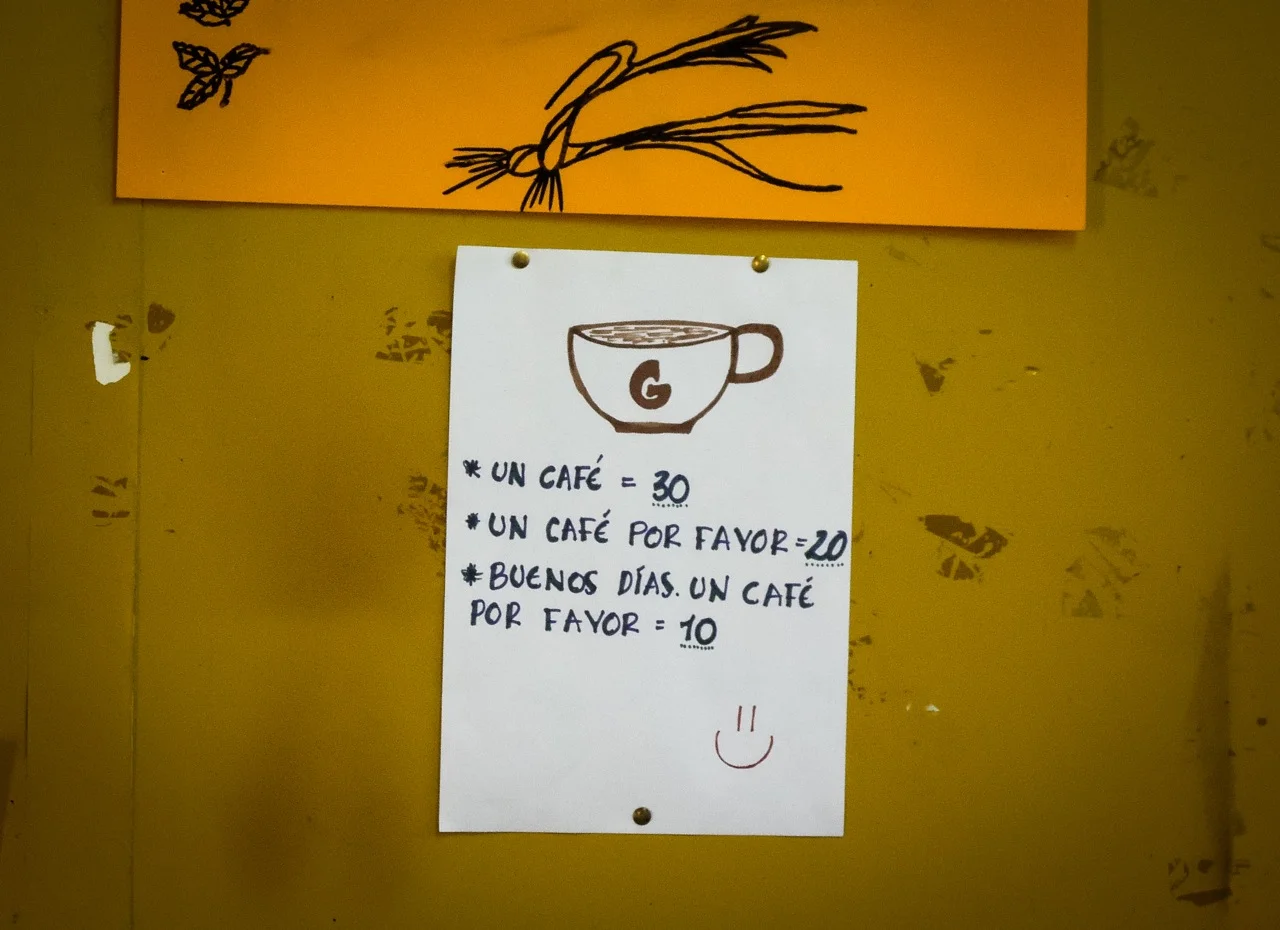 G
* UN CAFÉ = 30
* UN CAFÉ POR FAVOR = 20
* BUENOS DÍAS. UN CAFÉ
POR FAVOR = 10